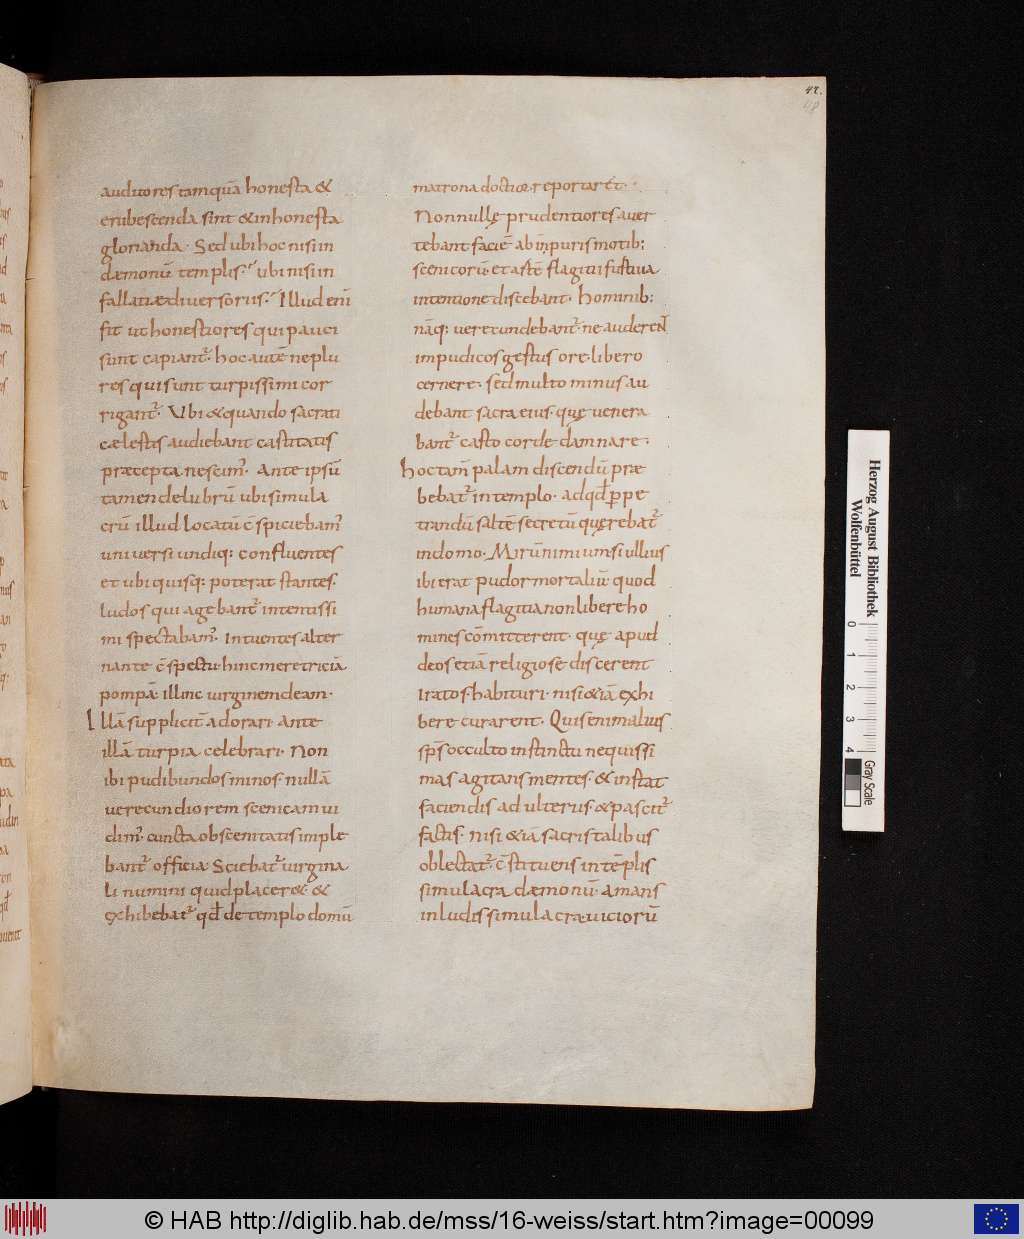 42.
48
auditores tamquā honesta &
erubescenda sint & inhonesta
glorianda. Sed ubi hoc nisi in
dæmonū templis? ubi nisi in
fallatiæ diversoriis? Illud enī
fit ut honestiores qui pauci
sunt capiant̄. hoc autē ne plu
res qui sunt turpissimi cor
rigant̄. Ubi & quando sacrati
cælestis audiebant castitatis
præcepta nescim̄. Ante ipsū
tamen delubrū ubi simula
crū illud locatū c̄spiciebam̄
universi undiq: confluentes
et ubi quisq: poterat stantes.
ludos qui agebant̄ intentissi
mi spectabam̄. Intuentes alter
nante c̄spectu hinc meretriciā
pompā illinc virginem deam.
Illā suppliciť adorari. Ante
illā turpia celebrari. Non
ibi pudibundos mimos nullā
verecundiorem scenicam vi
dim̄. cuncta obscenitatis imple
bant̄ officia. Sciebat̄ virgina
li numini quid placer&. &
exhibebat̄ qđ de templo domū
matrona doctior reportaret.
Nonnullę prudentiores aver
tebant faciē ab inpuris motib:
scenicorū et artē flagitii furtiva
intentione discebant. hominib:
nāq: verecundebant̄ ne auderent
impudicos gestus ore libero
cernere. sed multo minus au
debant sacra eius quę venera
bant̄ casto corde damnare.
hoc tam̄ palam discendū præ
bebat̄ in templo. ad qđ ꝑpe
trandū saltē secretū quęrebat̄
in domo. Mirū nimium si ullius
ibi erat pudor mortaliū quod
humana flagitia non libere ho
mines cōmitterent. quę apud
deos etiā religiose discerent
iratos habituri. nisi & iā exhi
bere curarent. Quis enim alius
sp̄s occulto instinctu nequissi
mas agitans mentes. & instat
faciendis adulteriis. & pascit̄
factis. nisi & iā sacris talibus
oblectat̄. c̄stituens in tēplis
simulacra dæmonū. amans
in ludis simulacra viciorū
Herzog August Bibliothek
Wolfenbüttel
0 1 2 3 4
Gray Scale
© HAB http://diglib.hab.de/mss/16-weiss/start.htm?image=00099